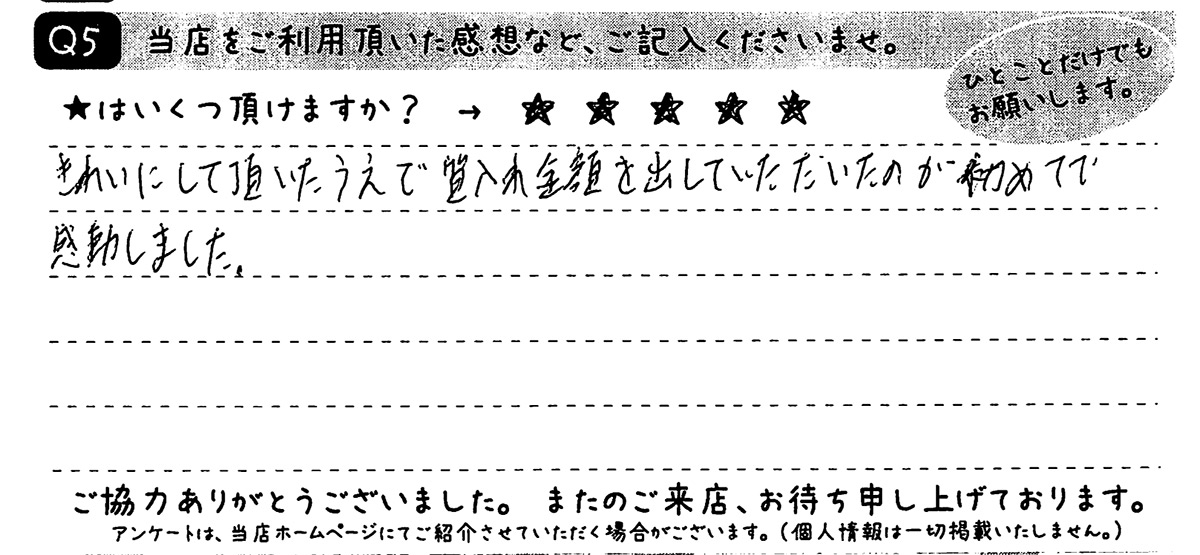 Q5 当店をご利用頂いた感想など、ご記入くださいませ。
ひとことだけでも
お願いします。
★はいくつ頂けますか? → ★ ★ ★ ★ ★
きれいにして頂いたうえで質入れ金額を出していただいたのが初めてで
感動しました。
ご協力ありがとうございました。 またのご来店、お待ち申し上げております。
アンケートは、当店ホームページにてご紹介させていただく場合がございます。(個人情報は一切掲載いたしません。)